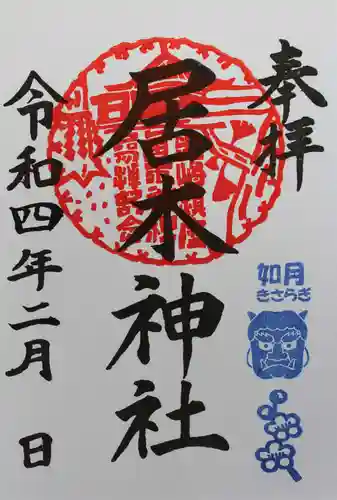 奉拝
居木神社
令和四年二月 日
如月
きさらぎ